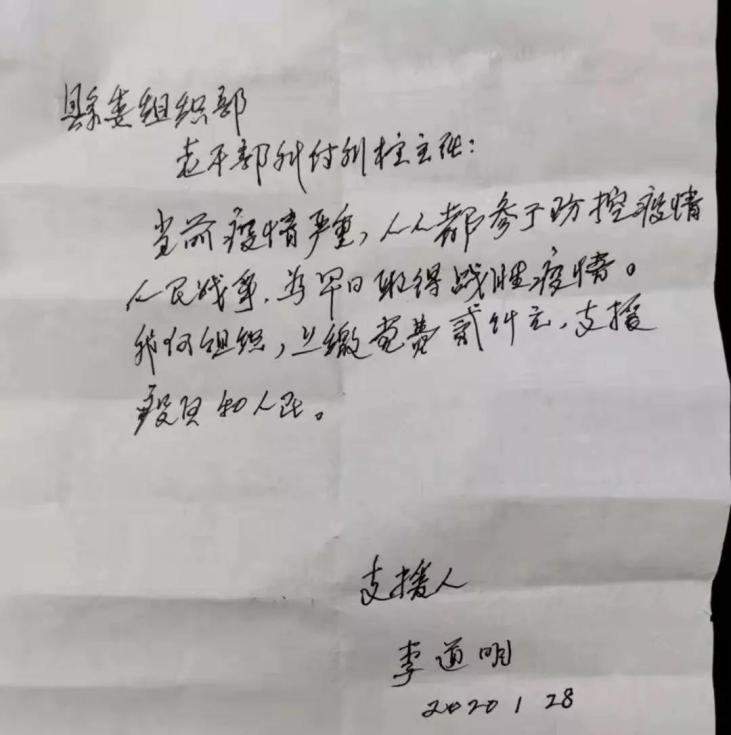 縣委组织部
老干部科付科长主任：
当前疫情严重，人人都参于防控疫情
人民战争，为早日取得战胜疫情。
我向组织，上缴党费贰仟元，支援
疫区和人民。
支援人
李道明
2020 1 28